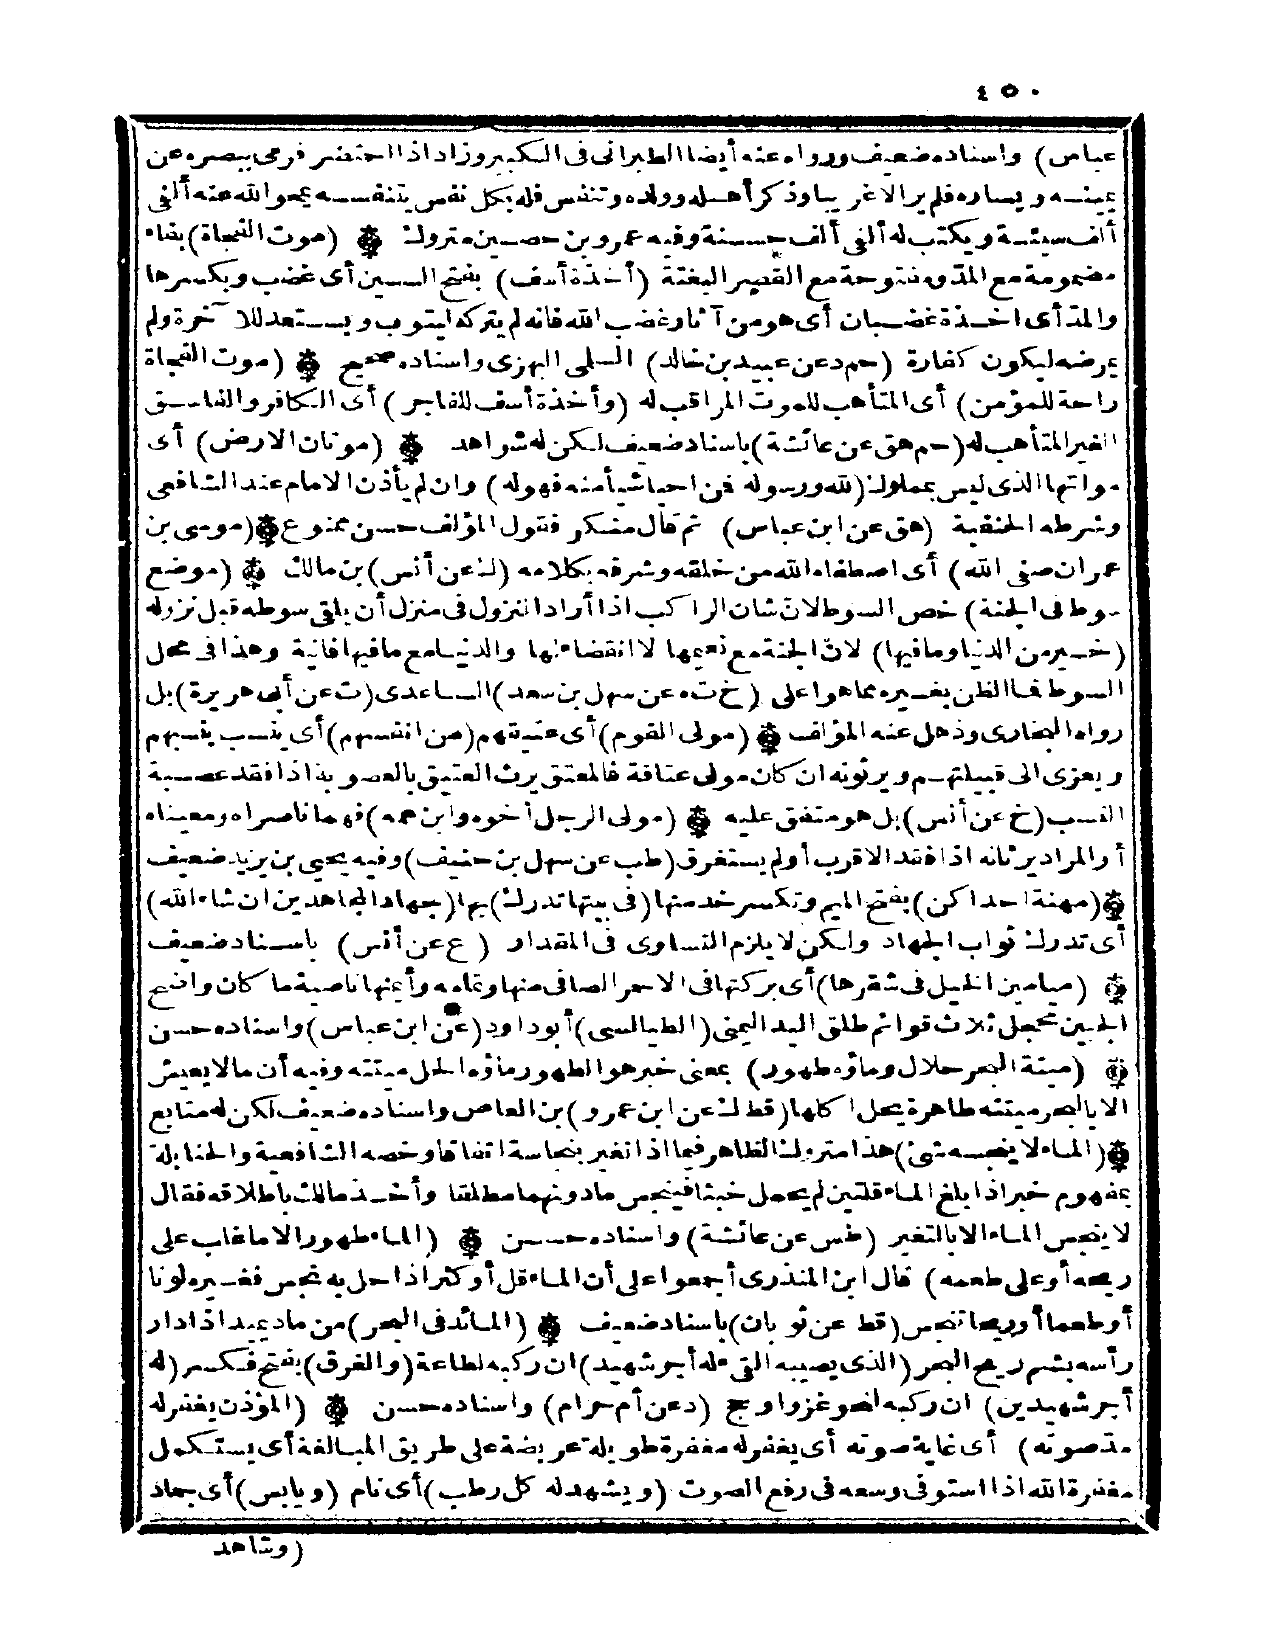 ٤٥٠
عباس) واسناده ضعيف ورواه عنه أيضا الطبرانى فى الكبير وزاد اذا احتضر فرمى ببصره عن
يمينه ويساره فلم ير الا غريبا وذكر أهله وولده وتنفس فله بكل نفس يتنفسه يمحو الله عنه ألفى
ألف سيئة ويكتب له ألفى ألف حسنة وفيه عمرو بن حصين متروك ۞ (موت الفجاة) بفاء
مضمومة مع المد ومفتوحة مع القصر البغتة (أخذة أسف) بفتح السين أى غضب وبكسرها
والمد أى اخذة غضبان أى هو من آثار غضب الله فانه لم يتركه ليتوب ويستعد للآخرة ولم
يمرضه ليكون كفارة (حم د عن عبيد بن خالد) السلمى البهزى واسناده صحيح ۞ (موت الفجاة
راحة للمؤمن) أى المتأهب للموت المراقب له (وأخذة أسف للفاجر) أى الكافر والفاسق
الغير المتأهب له (حم هق عن عائشة) باسناد ضعيف لكن له شواهد ۞ (موتان الارض) أى
مواتها الذى ليس بمملوك (لله ورسوله فمن احيا شيأ منه فهوله) وان لم يأذن الامام عند الشافعى
وشرطه الحنفية (هق عن ابن عباس) ثم قال منكر فقول المؤلف حسن ممنوع ۞ (موسى بن
عمران صفى الله) أى اصطفاه الله من خلقه وشرفه بكلامه (ك عن أنس) بن مالك ۞ (موضع
سوط فى الجنة) خص السوط لان شان الراكب اذا أراد النزول فى منزل أن يلقى سوطه قبل نزوله
(خير من الدنيا وما فيها) لان الجنة مع نعيمها لا انقضاء لها والدنيا مع ما فيها فانية وهذا فى محل
السوط فما الظن بغيره مما هو اعلى (خ ت ه عن سهل بن سعد) الساعدى (ت عن أبى هريرة) بل
رواه البخارى وذهل عنه المؤلف ۞ (مولى القوم) أى عتيقهم (من انفسهم) أى ينسب بنسبهم
ويعزى الى قبيلتهم ويرثونه ان كان مولى عتاقة فالمعتق يرث العتيق بالعصوبة اذا فقد عصبة
النسب (خ عن أنس) بل هو متفق عليه ۞ (مولى الرجل أخوه وابن عمه) فهما ناصراه ومعيناه
أو المراد يرثانه اذا فقد الاقرب أو لم يستغرق (طب عن سهل بن حنيف) وفيه يحيى بن يزيد ضعيف
۞ (مهنة احداكن) بفتح الميم وتكسر خدمتها (فى بيتها تدرك) بها (جهاد المجاهدين ان شاء الله)
أى تدرك ثواب الجهاد ولكن لا يلزم التساوى فى المقدار (ع عن أنس) باسناد ضعيف
۞ (ميامين الخيل فى شقرها) أى بركتها فى الاحمر الصافى منها وتمامه وأيمنها ناصية ما كان واضح
الجبين محجل ثلاث قوائم طلق اليد اليمنى (الطيالسى) أبو داود (عن ابن عباس) واسناده حسن
۞ (ميتة البحر حلال وماؤه طهور) بمعنى خبر هو الطهور ماؤه الحل ميتته وفيه أن ما لا يعيش
الا بالبحر ميتته طاهرة يحل اكلها (قط ك عن ابن عمرو) بن العاص واسناده ضعيف لكن له متابع
۞ (الماء لا ينجسه شئ) هذا متروك الظاهر فيما اذا تغير بنجاسة اتفاقا وخصه الشافعية والحنابلة
بمفهوم خبر اذا بلغ الماء قلتين لم يحمل خبثا فينجس ما دونهما مطلقا وأخذ مالك باطلاقه فقال
لا ينجس الماء الا بالتغير (طس عن عائشة) واسناده حسن ۞ (الماء طهور الا ما غلب على
ريحه أو على طعمه) قال ابن المنذرى أجمعوا على أن الماء قل أو كثر اذا حل به نجس فغيره لونا
أو طعما أو ريحا تنجس (قط عن ثوبان) باسناد ضعيف ۞ (المائد فى البحر) من ماد يميد اذا دار
رأسه بشم ريح البحر (الذى يصيبه القئ له أجر شهيد) ان ركبه لطاعة (والغرق) بفتح فكسر (له
أجر شهيدين) ان ركبه لنحو غزو او حج (د عن أم حرام) واسناده حسن ۞ (المؤذن يغفر له
مد صوته) أى غاية صوته أى يغفر له مغفرة طويلة عريضة على طريق المبالغة أى يستكمل
مغفرة الله اذا استوفى وسعه فى رفع الصوت (ويشهد له كل رطب) أى نام (ويابس) أى جماد
(وشاهد